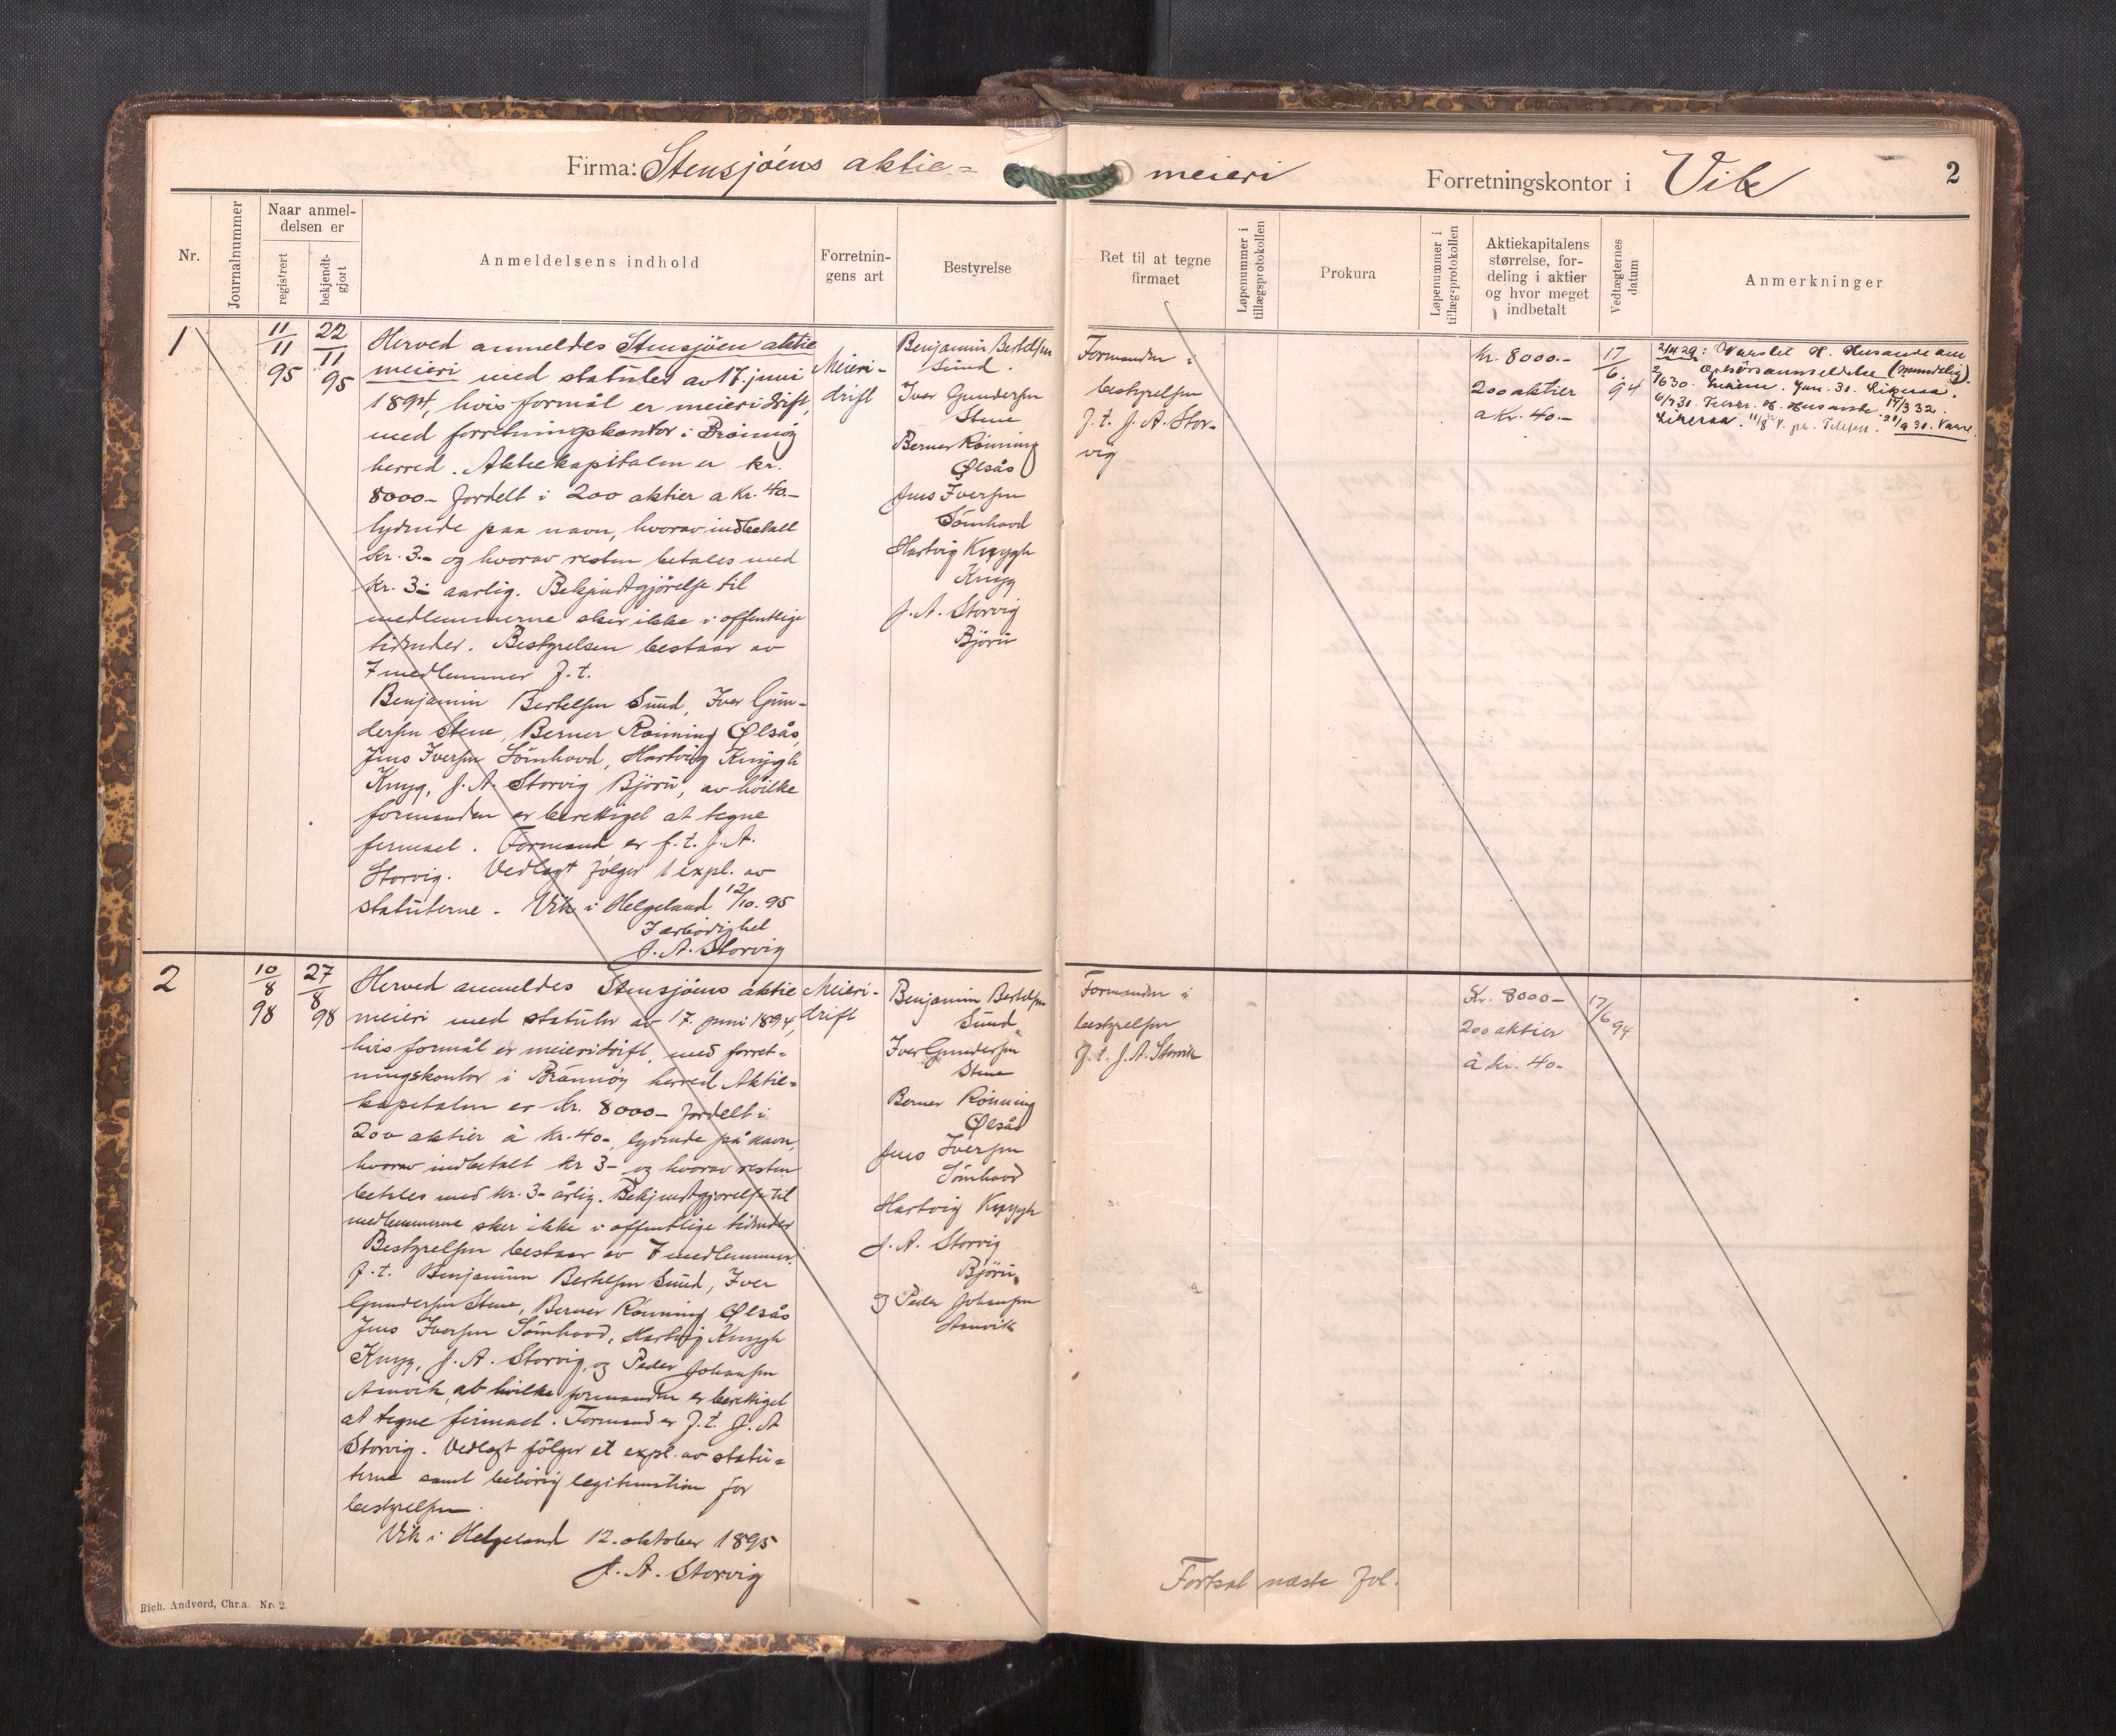 Firma: Stensjöens aktie=
meieri
Forretningskontor i Vik
2
Nr.
Journalnummer
Naar anmel-
delsen er
registrert
bekjendt-
gjort
Anmeldelsens indhold
Forretnin-
gens art
Bestyrelse
Ret til at tegne
firmaet
Løpenummer i
tillægsprotokollen
Prokura
Løpenummer i
tillægsprotokollen
Aktiekapitalens
størrelse, for-
deling i aktier
og hvor meget
indbetalt
Vedtægternes
datum
Anmerkninger
1
11/11 95
22/11 95
Herved anmeldes Stensjöen aktie
meieri med statuter av 17. juni
1894, hvis formål er meieridrift,
med forretningskontor i Brönnöy
herred. Aktiekapitalen er kr.
8000- fordelt i 200 aktier a kr. 40-
lydende paa navn, hvorav indbetalt
kr. 3- og hvorav resten betales med
kr. 3- aarlig. Bekjendtgjörelse til
medlemmerne sker ikke i offentlige
tidender. Bestyrelsen bestaar av
7 medlemmer f. t.
Benjamin Bertelsen Sund, Iver Gun-
dersen Stene, Berner Rönning Ølsås,
Jens Iversen Sömhovd, Hartvig Knygh
Knyg, J. A. Storvig Björü, av hvilke
formanden er berettiget at tegne
firmaet. Formand er f. t. J. A.
Storvig. Vedlagt fölger 1 expl. av
statuterne. Vik i Helgeland 12/10. 95
Ærbödighet
J. A. Storvig
Meieri-
drift
Benjamin Bertelsen
Sund.
Iver Gundersen
Stene
Berner Rönning
Ølsås
Jens Iversen
Sömhovd
Hartvig Knygh
Knyg
J. A. Storvig
Björü
Formanden i
bestyrelsen
f. t. J. A. Stor-
vig
Kr. 8000.-
200 aktier
a kr. 40.-
17/6. 94
2/4 29: Varslet H. Husanste om
ophörsanmeldelse (mundtlig).
Jan. 30. Likesaa.
H. Husanste 17/3 32.
Likesaa. pr. Telefon.
2
10/8 98
27/8 98
Herved anmeldes Stensjöens aktie
meieri med statuter av 17. juni 1894,
hvis formål er meieridrift, med forret-
ningskontor i Brönnöy herred Aktie-
kapitalen er kr. 8000- fordelt i
200 aktier à kr. 40-, lydende på navn,
hvorav indbetalt kr 3- og hvorav resten
betales med kr. 3- årlig. Bekjendtgjörelse til
medlemmerne sker ikke i offentlige tidender
Bestyrelsen bestaar av 7 medlemmer.
f. t. Benjamin Bertelsen Sund, Iver
Gundersen Stene, Berner Rönning Ølsås
Jens Iversen Sömhovd, Hartvig Knygh
Knyg, J. A. Storvig, og Peder Johansen
Arnvik, av hvilke formanden er berettiget
at tegne firmaet. Formand er f. t. J. A
Storvig. Vedlagt fölger et expl. av statu-
terne samt behörig legitimation for
bestyrelsen.
Vik i Helgeland 12. oktober 1895
J. A. Storvig
Meieri-
drift
Benjamin Bertelsen
Sund
Iver Gundersen
Stene
Berner Rönning
Ølsås
Jens Iversen
Sömhovd
Hartvig Knygh
J. A. Storvig
Björü
og Peder Johansen
Arnvik
Formanden i
bestyrelsen
f. t. J. A. Storvik
Kr. 8000-
200 aktier
à kr. 40-
17/6 94
Fortsat næste fol.
Rich. Andvord, Chr.a. Nr. 2.